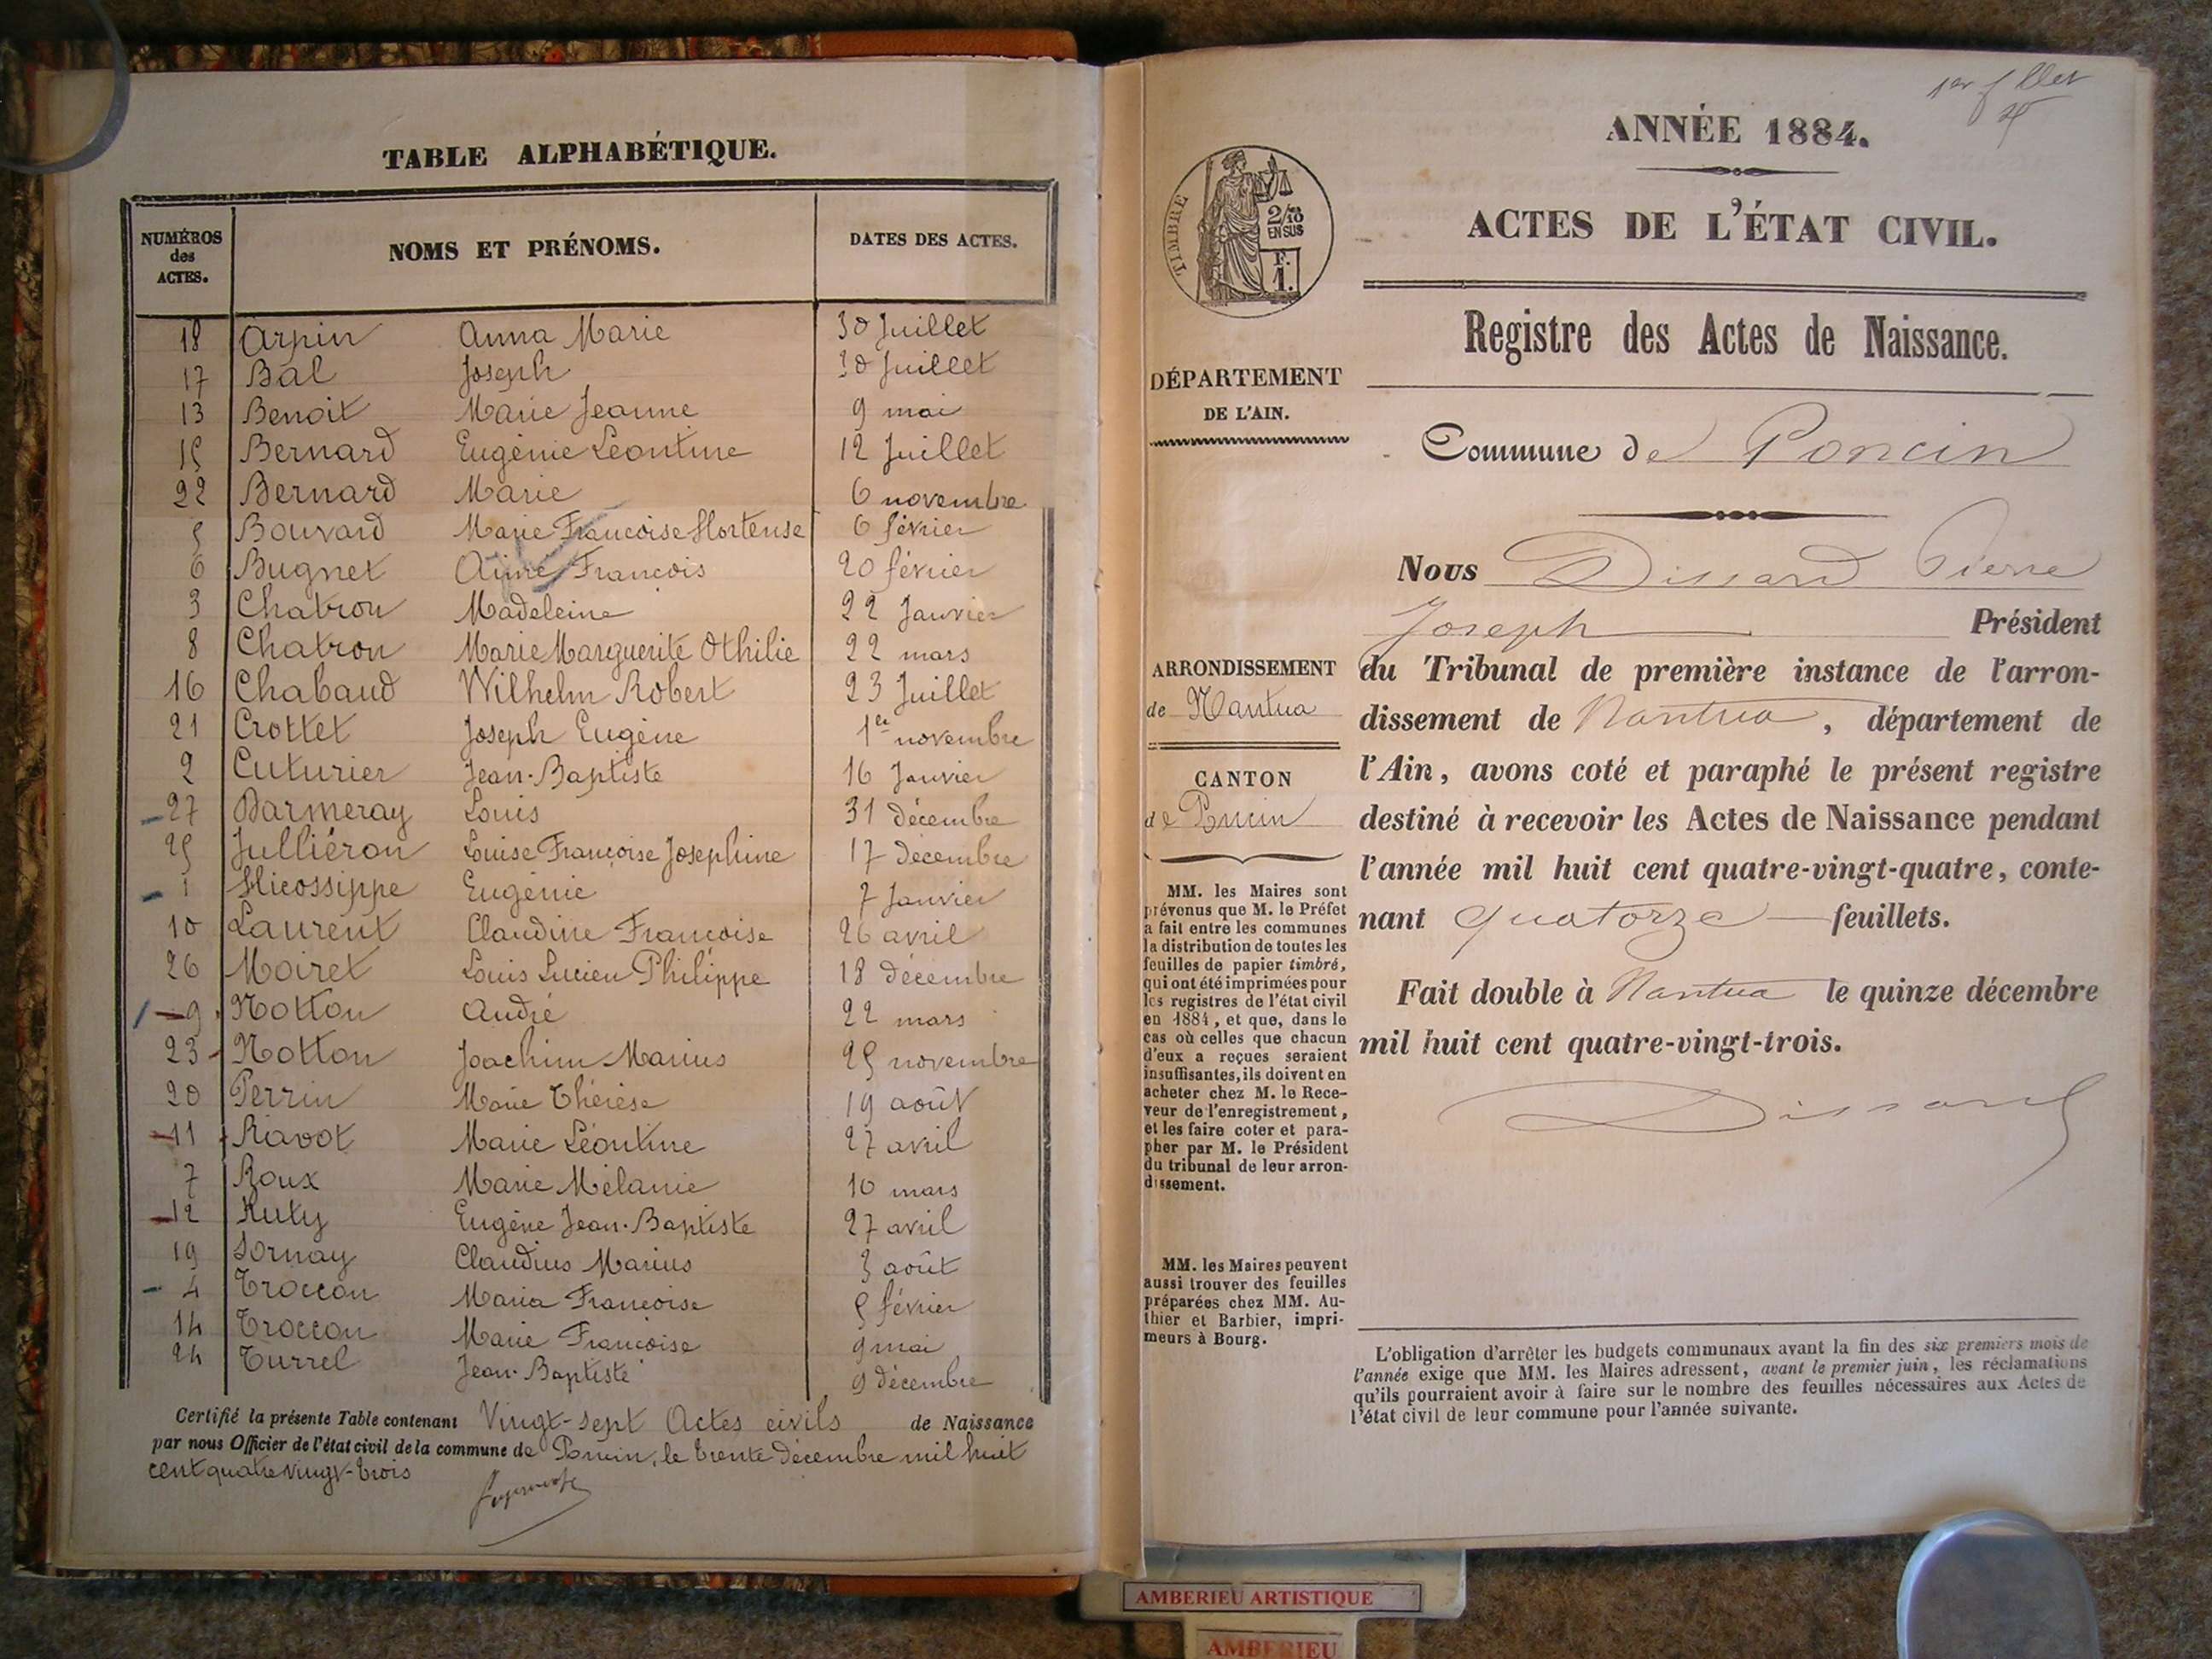 TABLE ALPHABÉTIQUE.
NUMÉROS des ACTES. NOMS ET PRÉNOMS. DATES DES ACTES.
18 Arpin Anna Marie 30 Juillet
17 Bal Joseph 30 Juillet
13 Benoit Marie Jeanne 9 mai
15 Bernard Eugénie Léontine 12 Juillet
22 Bernard Marie 6 novembre
5 Bouvard Marie Françoise Hortense 6 février
6 Bugnet Aimé François 20 février
3 Chatron Madeleine 22 Janvier
8 Chatron Marie Marguerite Othilie 22 mars
16 Chabaud Wilhelm Robert 23 Juillet
21 Crottet Joseph Eugène 1er novembre
2 Cuturier Jean-Baptiste 16 Janvier
27 Darmeray Louis 31 décembre
25 Julliéron Louise Françoise Josephine 17 décembre
1 Hicossippe Eugénie 7 Janvier
10 Laurent Claudine Françoise 26 avril
26 Moiret Louis Lucien Philippe 18 décembre
9 Notton André 22 mars
23 Notton Joachim Marius 25 novembre
20 Perrin Marie Thérèse 19 août
11 Ravot Marie Léontine 27 avril
7 Roux Marie Mélanie 10 mars
12 Ruty Eugène Jean-Baptiste 27 avril
19 Sornay Claudius Marius 3 août
4 Troccon Maria Françoise 5 février
14 Troccon Marie Françoise 9 mai
24 Turrel Jean-Baptiste 9 décembre
Certifié la présente Table contenant Vingt-sept Actes civils de Naissance
par nous Officier de l'état civil de la commune de Poncin, le trente décembre mil huit
cent quatre vingt-trois
1er
ANNÉE 1884.
ACTES DE L'ÉTAT CIVIL.
TIMBRE
2/10es
EN SUS
F.
1.
Registre des Actes de Naissance.
DÉPARTEMENT
DE L'AIN.
Commune de Poncin
Nous Dissard Pierre
Joseph Président
du Tribunal de première instance de l'arron-
dissement de Nantua, département de
l'Ain, avons coté et paraphé le présent registre
destiné à recevoir les Actes de Naissance pendant
l'année mil huit cent quatre-vingt-quatre, conte-
nant quatorze feuillets.
Fait double à Nantua le quinze décembre
mil huit cent quatre-vingt-trois.
Dissard
ARRONDISSEMENT
de Nantua
CANTON
de Poncin
MM. les Maires sont
prévenus que M. le Préfet
a fait entre les communes
la distribution de toutes les
feuilles de papier timbré,
qui ont été imprimées pour
les registres de l'état civil
en 1884, et que, dans le
cas où celles que chacun
d'eux a reçues seraient
insuffisantes, ils doivent en
acheter chez M. le Rece-
veur de l'enregistrement,
et les faire coter et para-
pher par M. le Président
du tribunal de leur arron-
dissement.
MM. les Maires peuvent
aussi trouver des feuilles
préparées chez MM. Au-
thier et Barbier, impri-
meurs à Bourg.
L'obligation d'arrêter les budgets communaux avant la fin des six premiers mois de
l'année exige que MM. les Maires adressent, avant le premier juin, les réclamations
qu'ils pourraient avoir à faire sur le nombre des feuilles nécessaires aux Actes de
l'état civil de leur commune pour l'année suivante.
AMBERIEU ARTISTIQUE
AMBERIEU